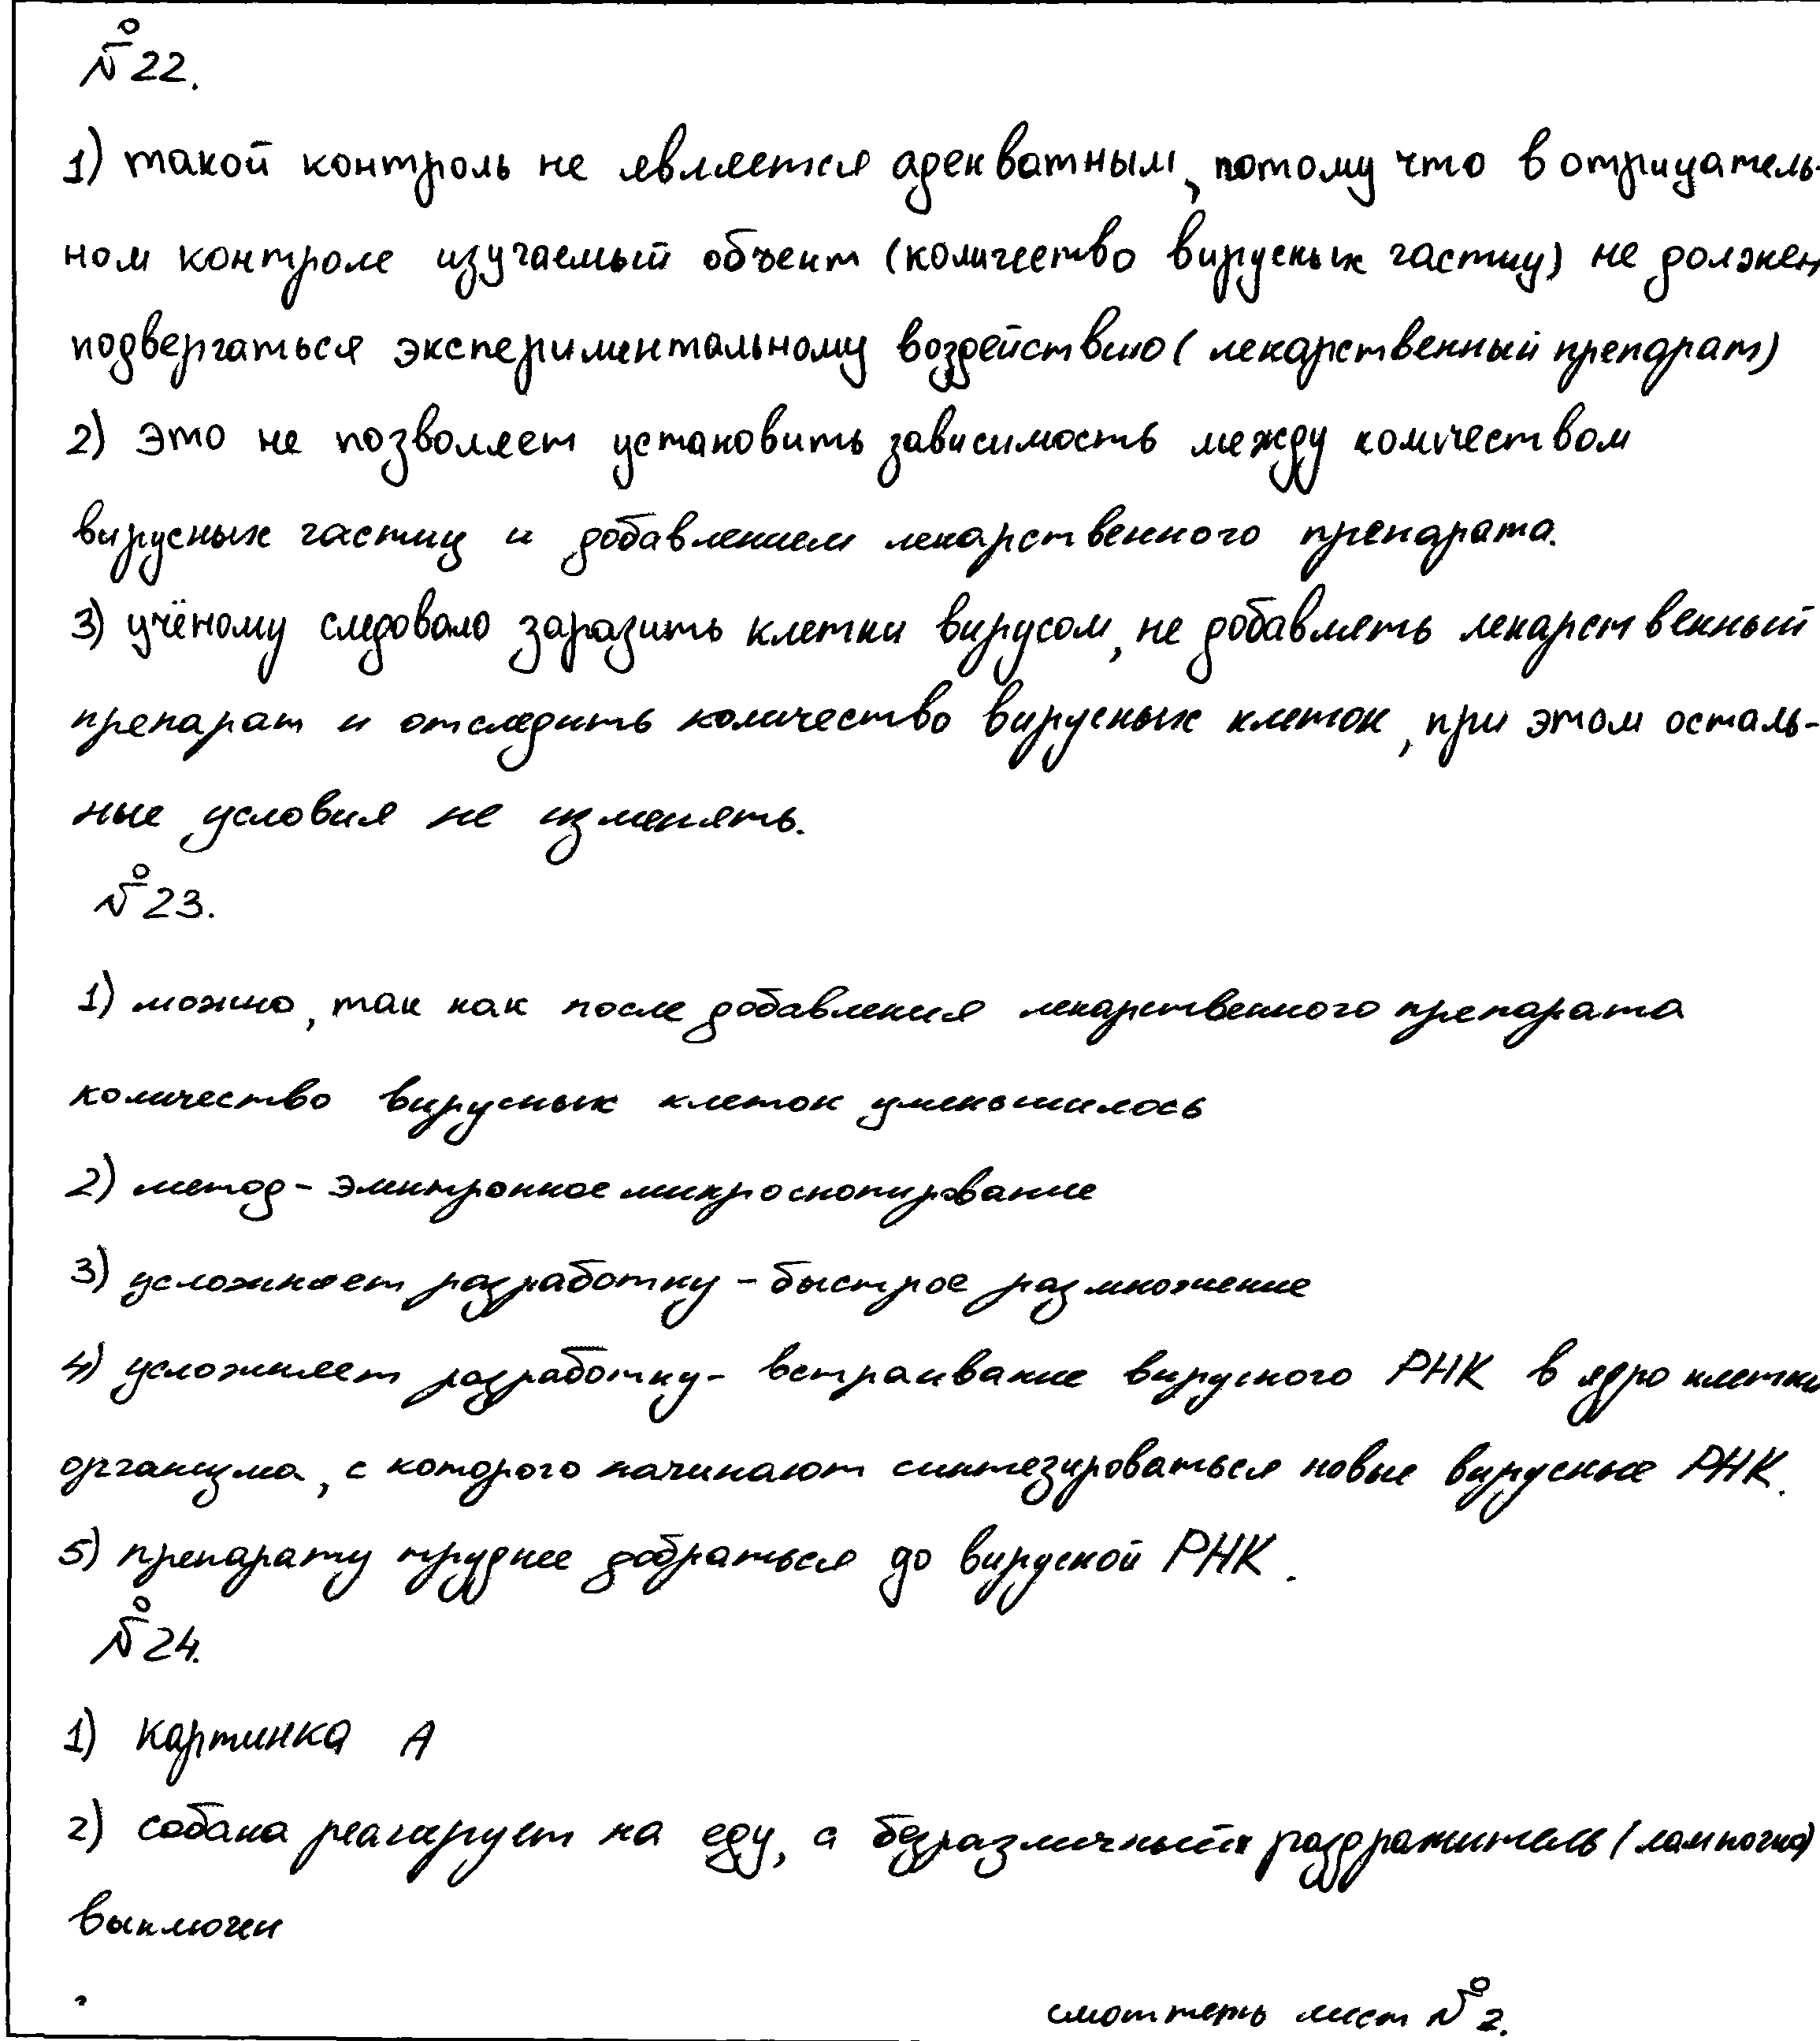 №22.
1) такой контроль не является адекватным, потому что в отрицатель-
ном контроле изучаемый объект (количество вирусных частиц) не должен
подвергаться экспериментальному воздействию (лекарственный препарат)
2) это не позволяет установить зависимость между количеством
вирусных частиц и добавлением лекарственного препарата.
3) учёному следовало заразить клетки вирусом, не добавлять лекарственный
препарат и отследить количество вирусных клеток, при этом осталь-
ные условия не изменять.
№23.
1) можно, так как после добавления лекарственного препарата
количество вирусных клеток уменьшилось
2) метод - электронное микроскопирование
3) усложняет разработку - быстрое размножение
4) усложняет разработку - встраивание вирусного РНК в ядро клетки
организма, с которого начинают синтезироваться новые вирусные РНК.
5) препарату труднее добраться до вирусной РНК.
№24.
1) картинка А
2) собака реагирует на еду, а безразличный раздражитель (лампочка)
выключен
смотреть лист №2.